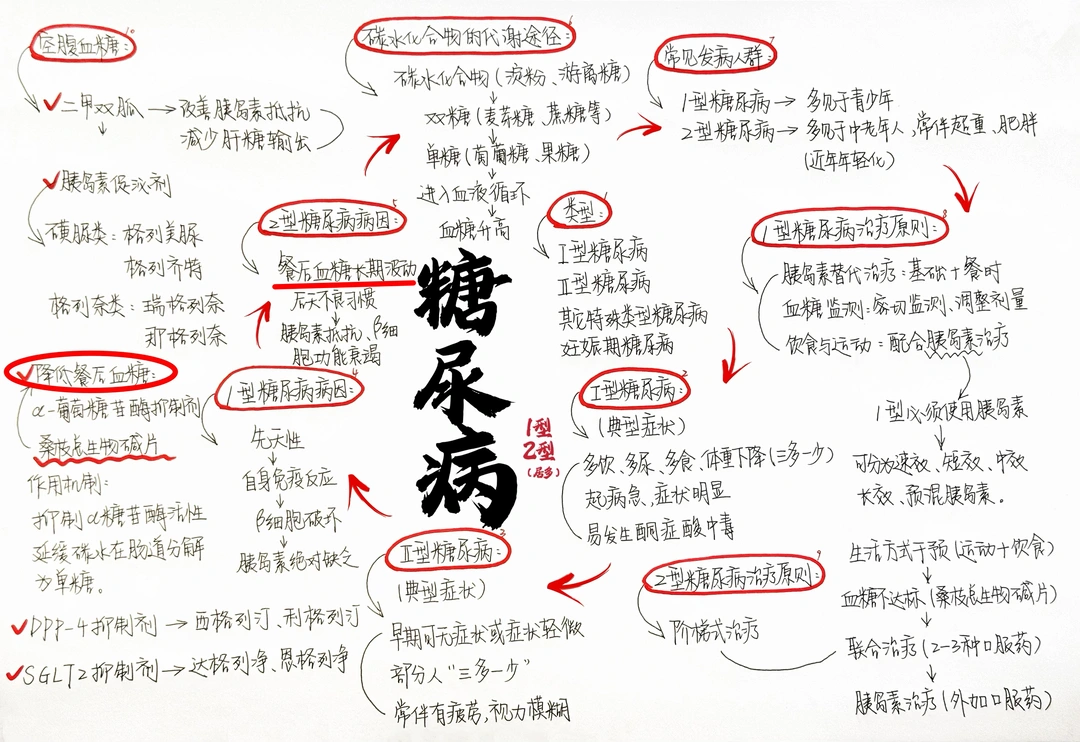 糖尿病
1型
2型
(居多)
类型: 1
I型糖尿病
II型糖尿病
其它特殊类型糖尿病
妊娠期糖尿病
I型糖尿病: 2
(典型症状)
多饮、多尿、多食、体重下降(三多一少)
起病急、症状明显
易发生酮症酸中毒
II型糖尿病: 3
(典型症状)
早期可无症状或症状轻微
部分人“三多一少”
常伴有疲劳,视力模糊
1型糖尿病病因: 4
先天性
自身免疫反应
β细胞破坏
胰岛素绝对缺乏
2型糖尿病病因: 5
餐后血糖长期波动
后天不良习惯
胰岛素抵抗、β细
胞功能衰竭
碳水化合物的代谢途径: 6
碳水化合物(淀粉、游离糖)
双糖(麦芽糖、蔗糖等)
单糖(葡萄糖、果糖)
进入血液循环
血糖升高
常见发病人群: 7
1型糖尿病→多见于青少年
2型糖尿病→多见于中老年人,常伴超重、肥胖
(近年年轻化)
1型糖尿病治疗原则: 8
胰岛素替代治疗:基础+餐时
血糖监测:密切监测、调整剂量
饮食与运动:配合胰岛素治疗
1型必须使用胰岛素
可分为速效、短效、中效
长效、预混胰岛素。
2型糖尿病治疗原则: 9
阶梯式治疗
生活方式干预(运动+饮食)
血糖不达标(桑枝总生物碱片)
联合治疗(2-3种口服药)
胰岛素治疗(外加口服药)
空腹血糖: 10
✓二甲双胍→改善胰岛素抵抗
减少肝糖输出
✓胰岛素促泌剂
磺脲类:格列美脲
格列齐特
格列奈类:瑞格列奈
那格列奈
✓降低餐后血糖:
α-葡萄糖苷酶抑制剂
桑枝总生物碱片
作用机制:
抑制α糖苷酶活性
延缓碳水在肠道分解
为单糖。
✓DPP-4抑制剂→西格列汀、利格列汀
✓SGLT2抑制剂→达格列净、恩格列净